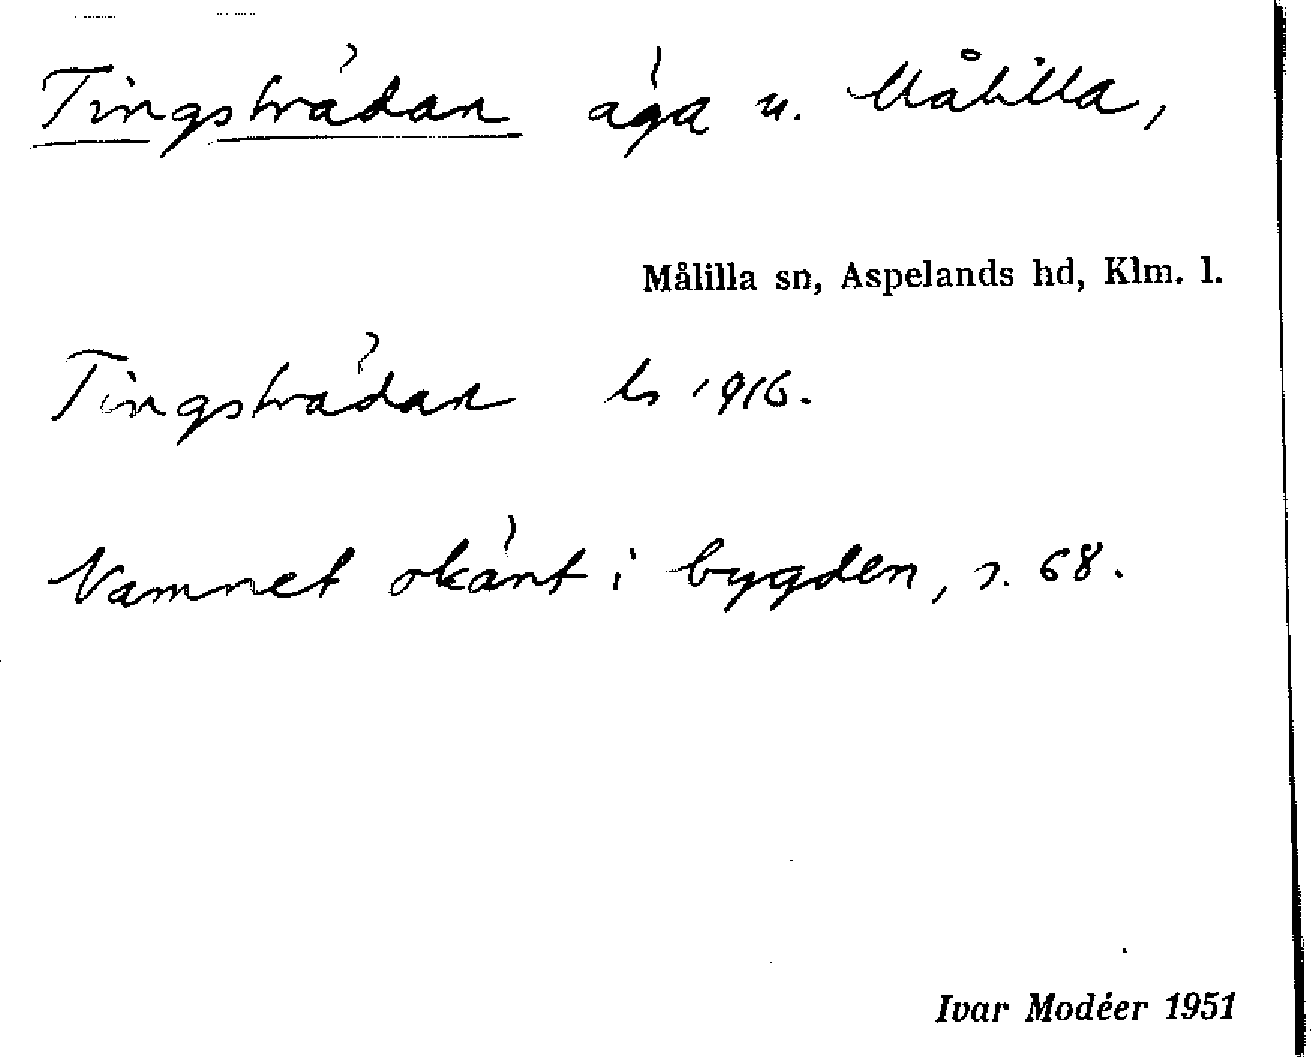 Tingsträdan äga u. Målilla,
Målilla sn, Aspelands hd, Klm. l.
Tingsträdan ls 1916.
Namnet okänt i bygden, s. 68.
Ivar Modéer 1951